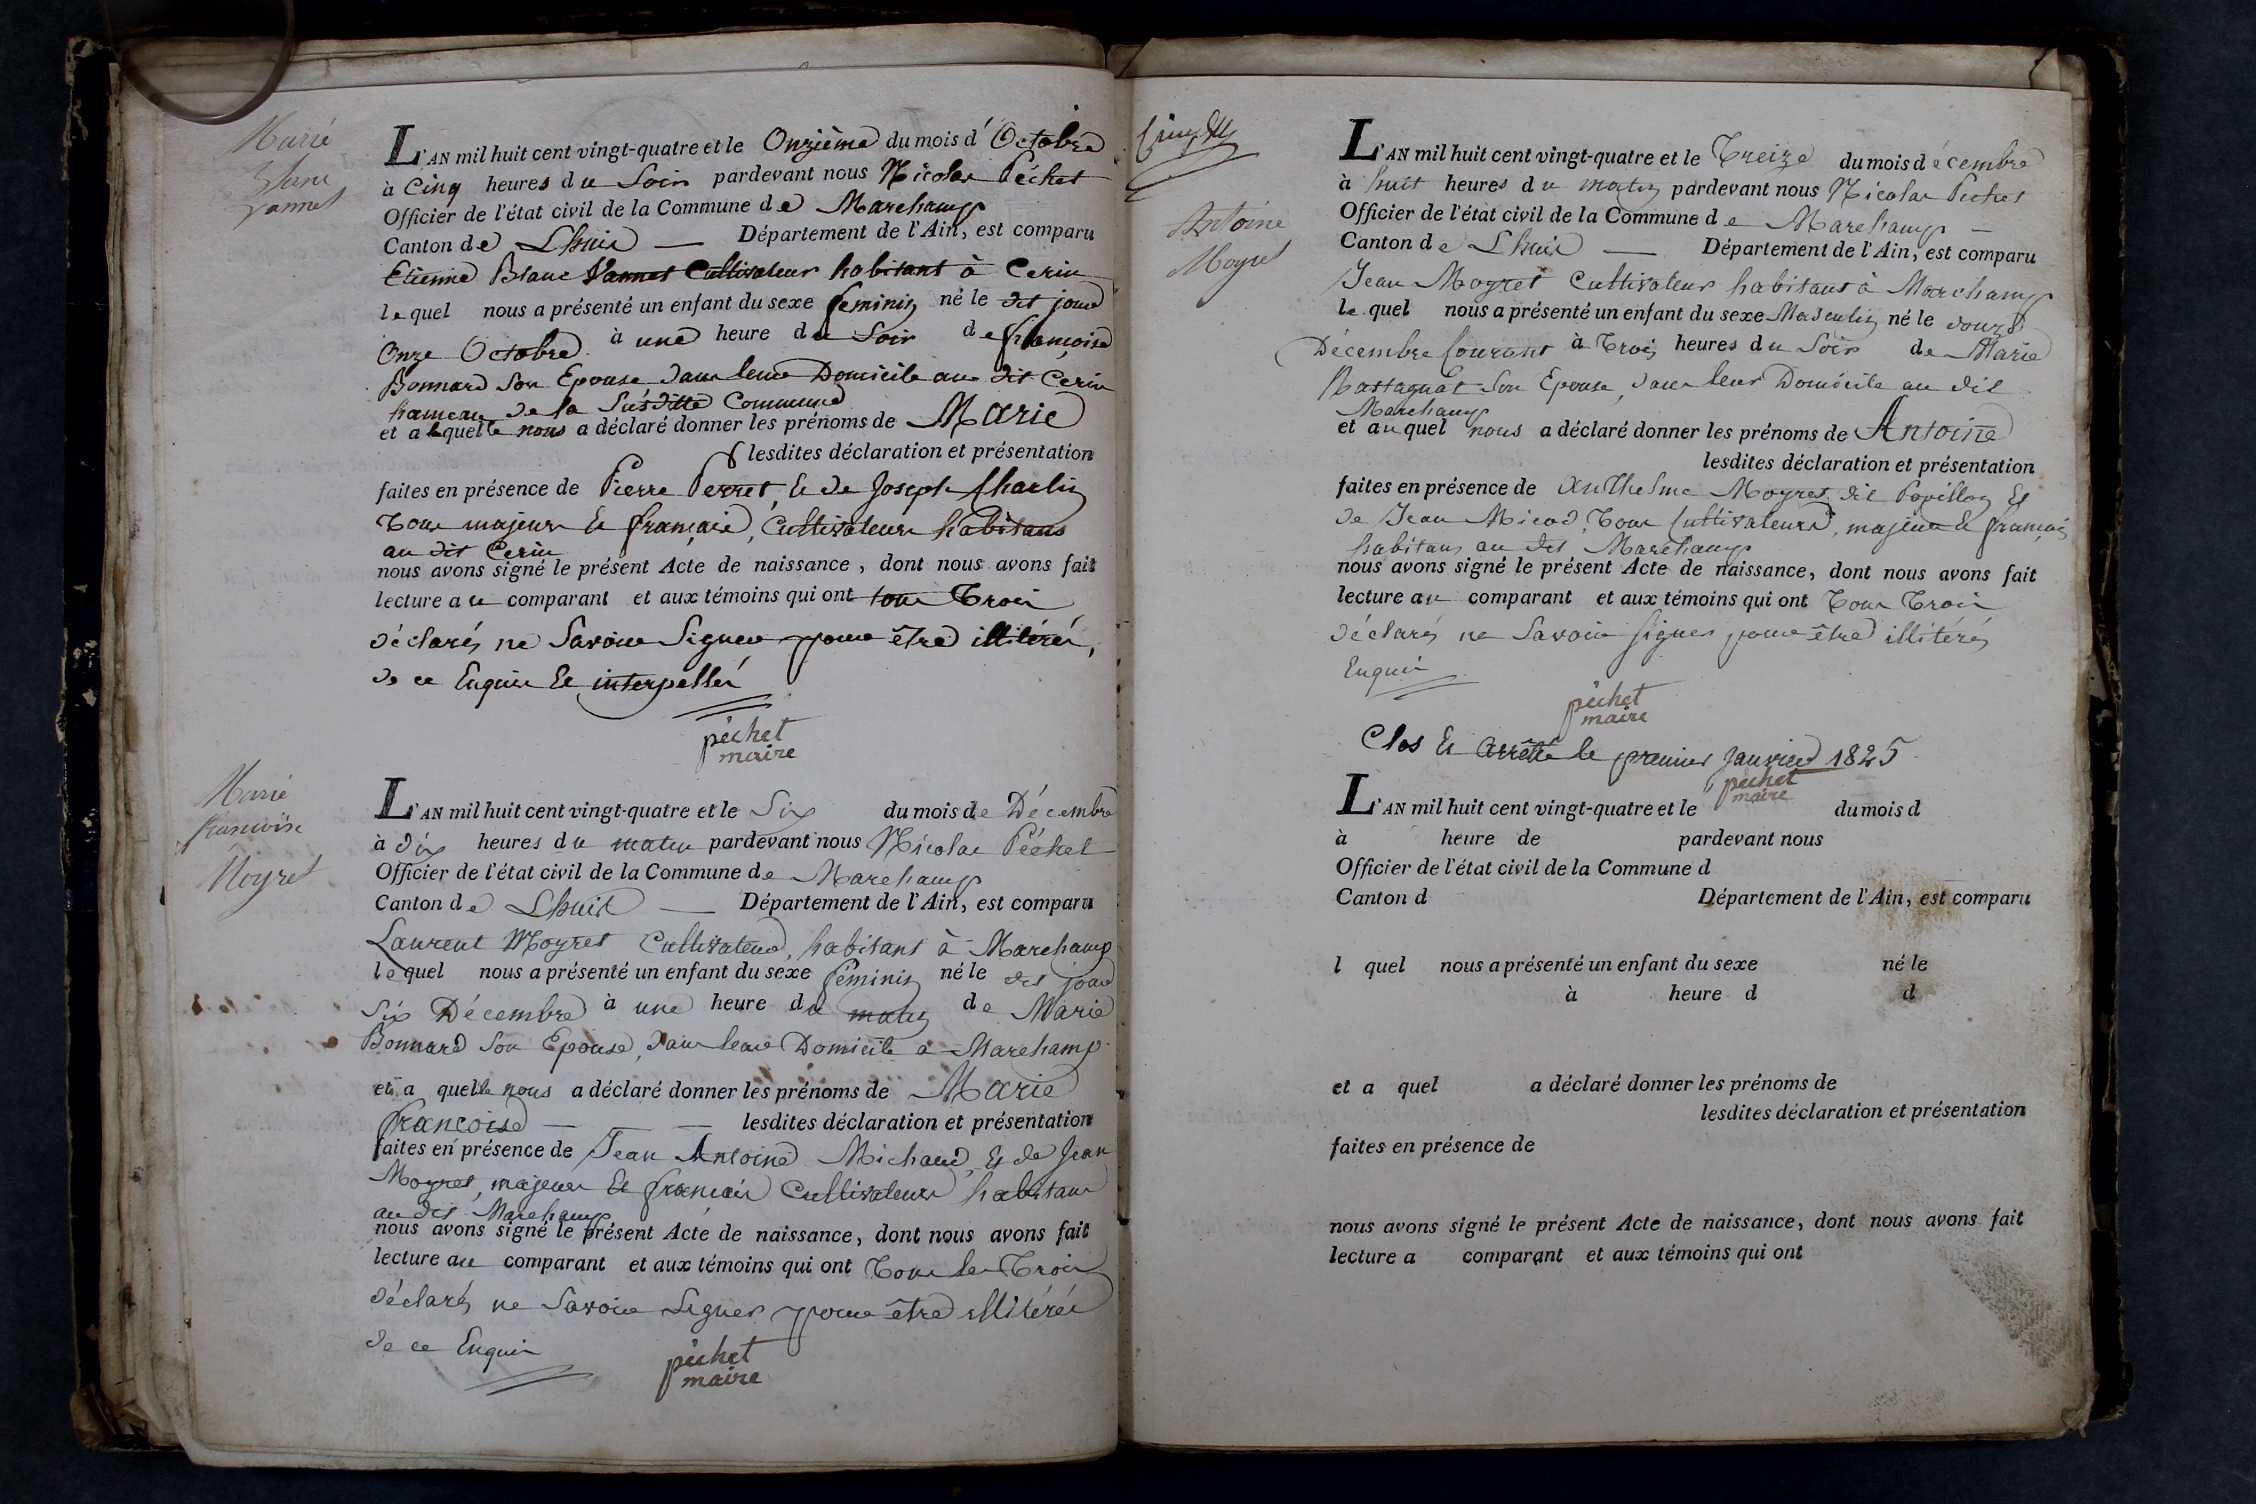 Marie
Blanc
Vannet
L'AN mil huit cent vingt-quatre et le Onzième du mois d'Octobre
à Cinq heures du Soir pardevant nous Nicolas Péchet
Officier de l'état civil de la Commune de Marchamp
Canton de Lhuis — Département de l'Ain, est comparu
Etienne Blanc Vannet Cultivateur habitant à Cerin
lequel nous a présenté un enfant du sexe féminin né le dit jour
Onze Octobre à une heure du Soir de françoise
Bonnard Son Epouse dans leur Domicile au dit Cerin
hameau de la Susditte Commune
et a laquelle nous a déclaré donner les prénoms de Marie
lesdites déclaration et présentation
faites en présence de Pierre Perret, & de Joseph Charlin
Tous majeurs & français, Cultivateurs habitans
au dit Cerin
nous avons signé le présent Acte de naissance, dont nous avons fait
lecture au comparant et aux témoins qui ont tous Trois
déclarés ne Savoir Signer pour être illitérés,
de ce Enquis & interpellés
péchet
maire
Marie
francoise
Moyret
L'AN mil huit cent vingt-quatre et le Six du mois de Décembre
à dix heures du matin pardevant nous Nicolas Péchet
Officier de l'état civil de la Commune de Marchamp
Canton de Lhuis — Département de l'Ain, est comparu
Laurent Moyret Cultivateur, habitant à Marchamp
lequel nous a présenté un enfant du sexe féminin né le dit jour
Six Décembre à une heure du matin de Marie
Bonnard Son Epouse, dans leur Domicile à Marchamp
et a quelle nous a déclaré donner les prénoms de Marie
françoise — — — lesdites déclaration et présentation
faites en présence de Jean Antoine Michaud, & de Jean
Moyret, majeurs & français Cultivateurs habitans
au dit Marchamp
nous avons signé le présent Acte de naissance, dont nous avons fait
lecture au comparant et aux témoins qui ont Tous les Trois
déclarés ne Savoir Signer pour être illitérés
de ce Enquis
péchet
maire
Antoine
Moyret
L'AN mil huit cent vingt-quatre et le Treize du mois décembre
à huit heures du matin pardevant nous Nicolas Péchet
Officier de l'état civil de la Commune de Marchamp —
Canton de Lhuis — Département de l'Ain, est comparu
Jean Moyret Cultivateur habitant à Marchamp
lequel nous a présenté un enfant du sexe Masculin né le douze
Décembre Courant à Trois heures du Soir de Marie
Rostagnat Son Epouse, dans leur Domicile au dit
Marchamp
et auquel nous a déclaré donner les prénoms de Antoine
lesdites déclaration et présentation
faites en présence de Anthelme Moyret dit Papillon &
de Jean Micod, Tous Cultivateurs, majeurs & français
habitans au dit Marchamp
nous avons signé le présent Acte de naissance, dont nous avons fait
lecture au comparant et aux témoins qui ont Tous Trois
déclarés ne Savoir signer pour être illitérés
Enquis
péchet
maire
Clos & arrêté le premier Janvier 1825
péchet
maire
L'AN mil huit cent vingt-quatre et le du mois d
à heure de pardevant nous
Officier de l'état civil de la Commune d
Canton d Département de l'Ain, est comparu
l quel nous a présenté un enfant du sexe né le
à heure d d
et a quel a déclaré donner les prénoms de
lesdites déclaration et présentation
faites en présence de
nous avons signé le présent Acte de naissance, dont nous avons fait
lecture a comparant et aux témoins qui ont